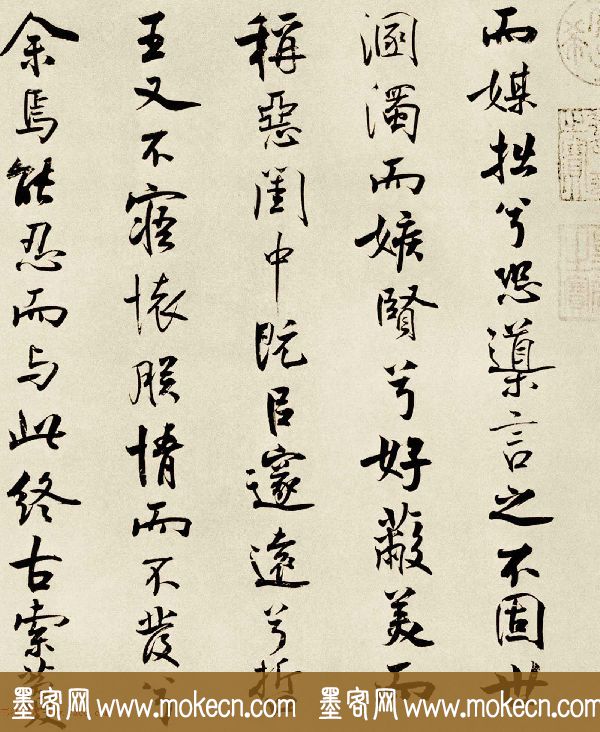 而媒拙兮恐導言之不固世
溷濁而嫉賢兮好蔽美而
稱惡閨中既㠯邃遠兮哲
王又不寤懐朕情而不發兮
余焉能忍而与此終古索藑
墨客网www.mokecn.com 墨客网www.mokecn.com